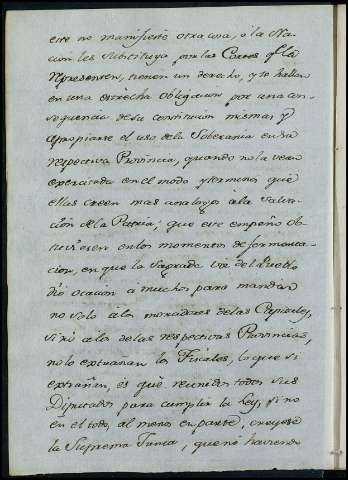 este no manifieste otra cosa, ò la Na-
cion les substituya por las Cortes q.e la
representen, tienen un derecho, y se hallan
en una estrecha obligacion por una con-
sequencia de su constitucion misma de
apropiarse el uso de la Soberania en su
respectiva Provincia, quando no la vean
exercitada en el modo y terminos que
ellas creen mas analogos à la Salva-
cion de la Patria; que este empeño ob-
tuviesen en los momentos de fermenta-
cion, en que la Sagrada voz del Pueblo
diò ocacion à muchos para mandar
no solo à los moradores de las Capitales,
sinò à los de las respectivas Provincias,
no lo extrañan los Fiscales, lo que si
extrañan, es que reunidos todos sus
Diputados para cumplir la Ley, si no
en el todo, al menos en parte, creyese
la Suprema Junta, que no haviendo